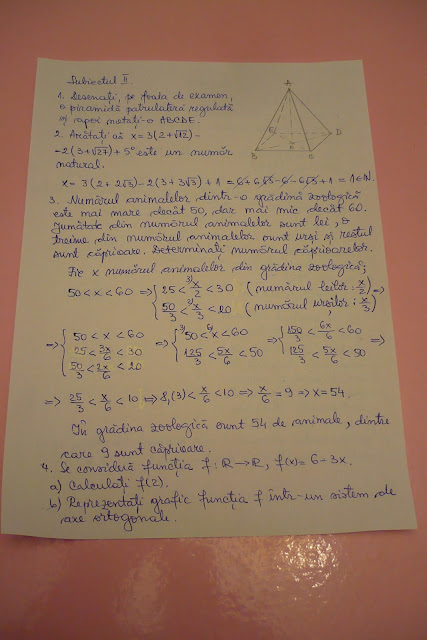 Subiectul II.
1. Desenați, pe foaia de examen,
o piramidă patrulateră regulată
și apoi notați-o ABCDE.
A
E
D
B
C
2. Arătați că x = 3(2+√12) -
-2(3+√27)+5⁰ este un număr
natural.
x = 3(2+2√3) - 2(3+3√3) + 1 = 6+6√3-6-6√3+1 = 1 ∈ N.
3. Numărul animalelor dintr-o grădină zoologică
este mai mare decât 50, dar mai mic decât 60.
Jumătate din numărul animalelor sunt lei, o
treime din numărul animalelor sunt urși și restul
sunt căprioare. Determinați numărul căprioarelor.
Fie x numărul animalelor din grădina zoologică;
50 < x < 60 ⇒ { 25 < ³⁾x/2 < 30 (numărul leilor: x/2) ⇒
50/3 < ²⁾x/3 < 20 (numărul urșilor: x/3)
⇒ { 50 < x < 60 ⇒ { ³⁾50 < ⁶⁾x < 60 ⇒ { 150/3 < 6x/6 < 60 ⇒
25 < 3x/6 < 30 125/3 < 5x/6 < 50 125/3 < 5x/6 < 50
50/3 < 2x/6 < 20
⇒ 25/3 < x/6 < 10 ⇒ 8,(3) < x/6 < 10 ⇒ x/6 = 9 ⇒ x = 54.
În grădina zoologică sunt 54 de animale, dintre
care 9 sunt căprioare.
4. Se consideră funcția f: R → R, f(x) = 6-3x.
a) Calculați f(2).
b) Reprezentați grafic funcția f într-un sistem de
axe ortogonale.